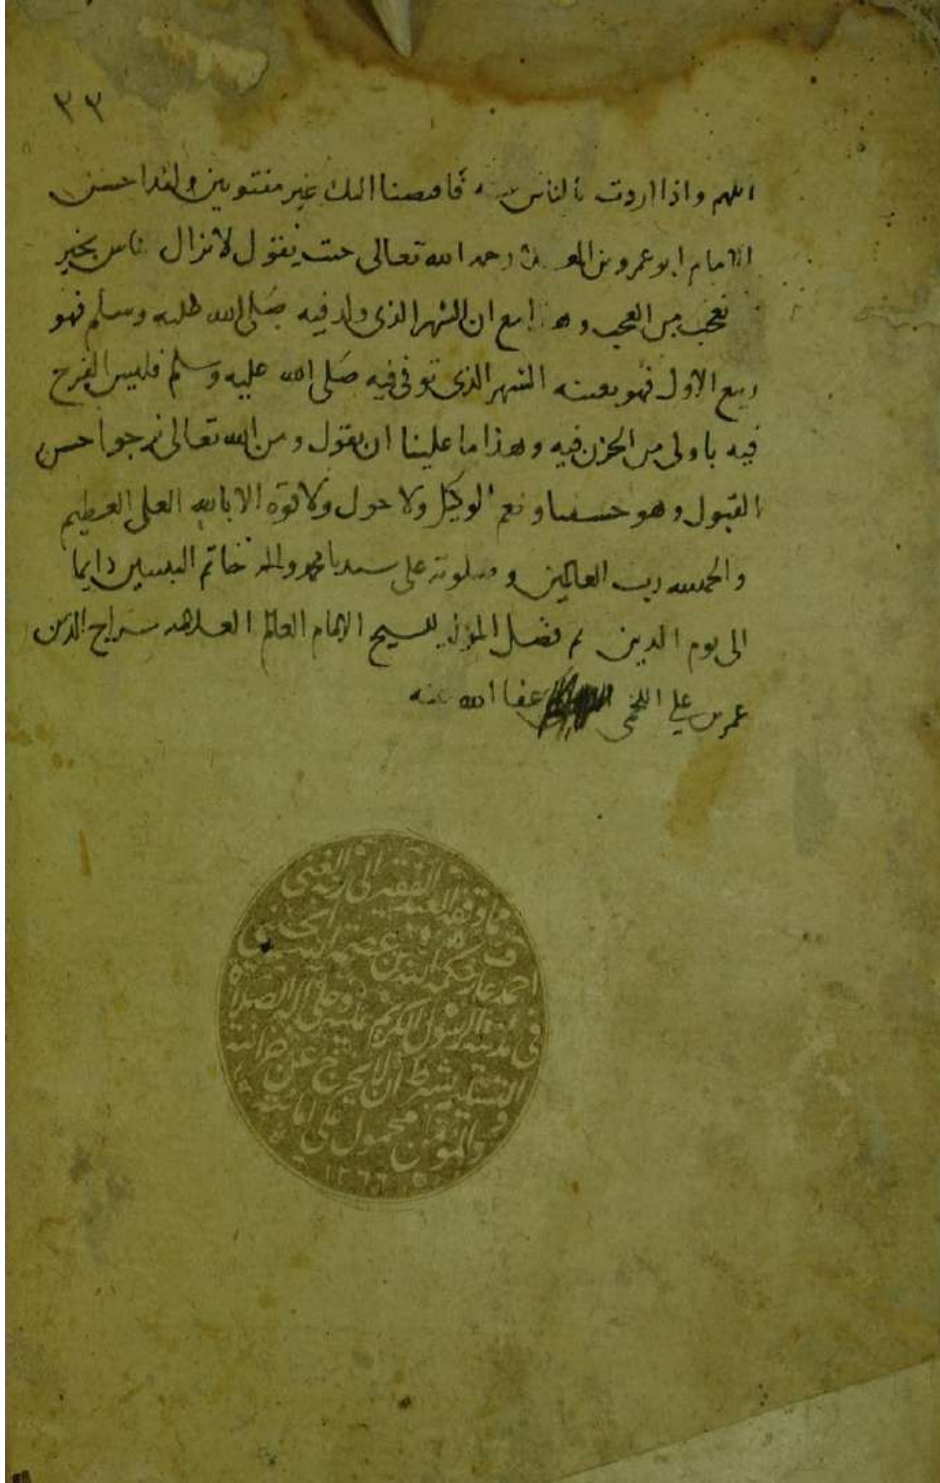 ٣٣
اللهم واذا اردت بالناس فتنة فاقبضنا اليك غير مفتونين ولقد احسن
الامام ابو عمرو بن العلا رحمه الله تعالى حيث يقول لا تزال ناس بخير
تعجب من العجب وهذا مع ان الشهر الذي ولد فيه صلى الله عليه وسلم فهو
ربيع الاول فهو بعينه الشهر الذي توفي فيه صلى الله عليه وسلم فليس الفرح
فيه باولى من الحزن فيه وهذا ما علينا ان نقول ومن الله تعالى نرجوا حسن
القبول وهو حسبنا ونعم الوكيل ولا حول ولا قوة الا بالله العلي العظيم
والحمد لله رب العالمين وصلوته على سيدنا محمد واله خاتم النبيين دايما
الى يوم الدين تم فضل للشيح الامام العالم سراج الدين
عمر بن علي اللخمي عفا الله عنه
مما وقفه العبد الفقير الى ربه الغني
احمد عارف حكمة الله بن عصمة الله الحسيني
في مدينة الرسول الكريم عليه وعلى آله الصلاة
والتسليم بشرط ان لا يخرج عن خزانته
والمؤمن محمول على امانته
١٢٦٦